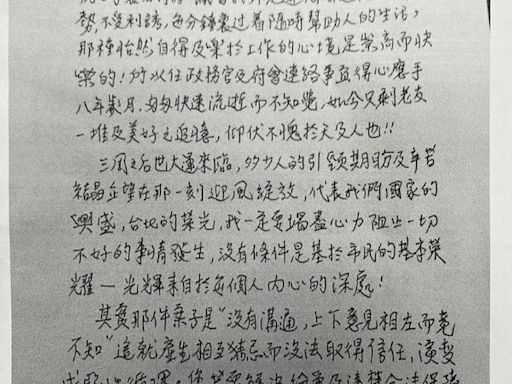 勢,不受利誘,每分鐘裏过着隨時幫助人的生活,
那種怡然自得及樂於工作的心境是崇高而快
樂的!所以任政務官及府會連絡事宜得心應手
八年歲月,匆匆快速流逝而不知覺,如今只剩老友
一堆及美好之追憶,仰伏不愧於天及人也!!
三周之后世大運來臨,多少人的引頸期盼及辛苦
結晶正望在那一刻迎風綻放,代表我們國家的
興盛,台北的榮光,我一定要竭盡心力阻止一切
不好的事情發生,沒有條件是基於市民的基本榮
耀—光輝來自於每個人內心的深處!
其實那件案子是"沒有溝通,上下意見相左而毫
不知"這就產生相互猜忌而沒法取得信任,演變